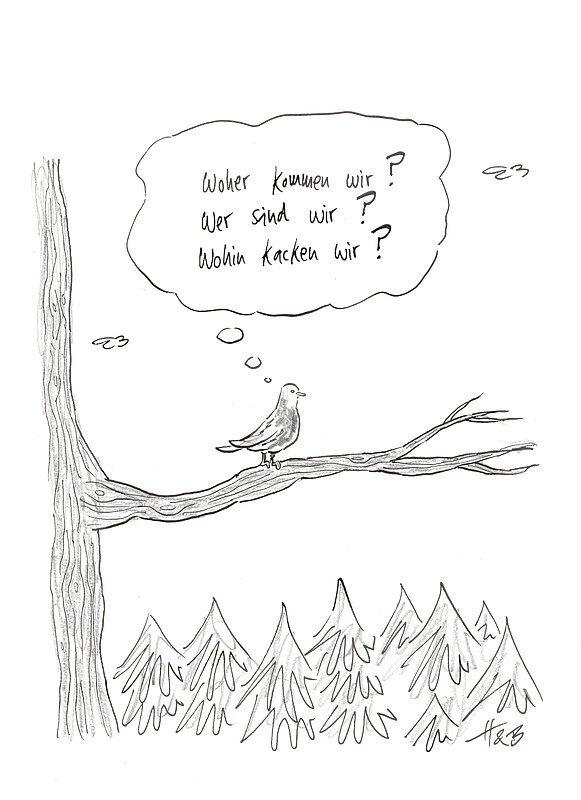 Woher kommen wir?
Wer sind wir?
Wohin kacken wir?
H&B